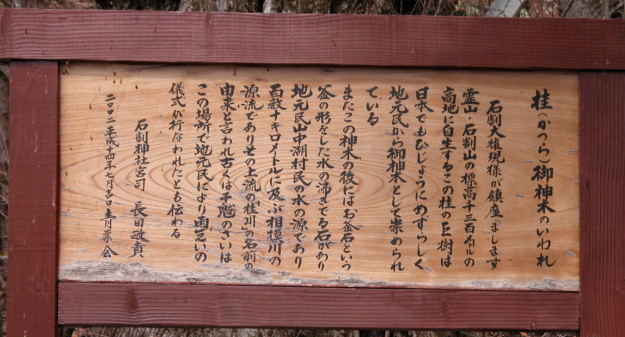 桂（かつら）御神木のいわれ
石割大権現様が鎮座しまします
霊山・石割山の標高千三百米の
高地に自生するこの桂の巨樹は
日本でもひじょうにめずらしく
地元民から御神木として崇められ
ている
またこの神木の後にはお釜石という
釜の形をした水の沸きでる石があり
地元民山中湖村民の水の源であり
百数十キロメートルに及ぶ相模川の
源流でありその上流の「桂川」の名前の
由来と言われ古くは干魃のさいは
この場所で地元民により雨乞いの
儀式が行なわれたとも伝わる
石割神社宮司 長田政貢
二〇〇二 平成十四年七月吉日